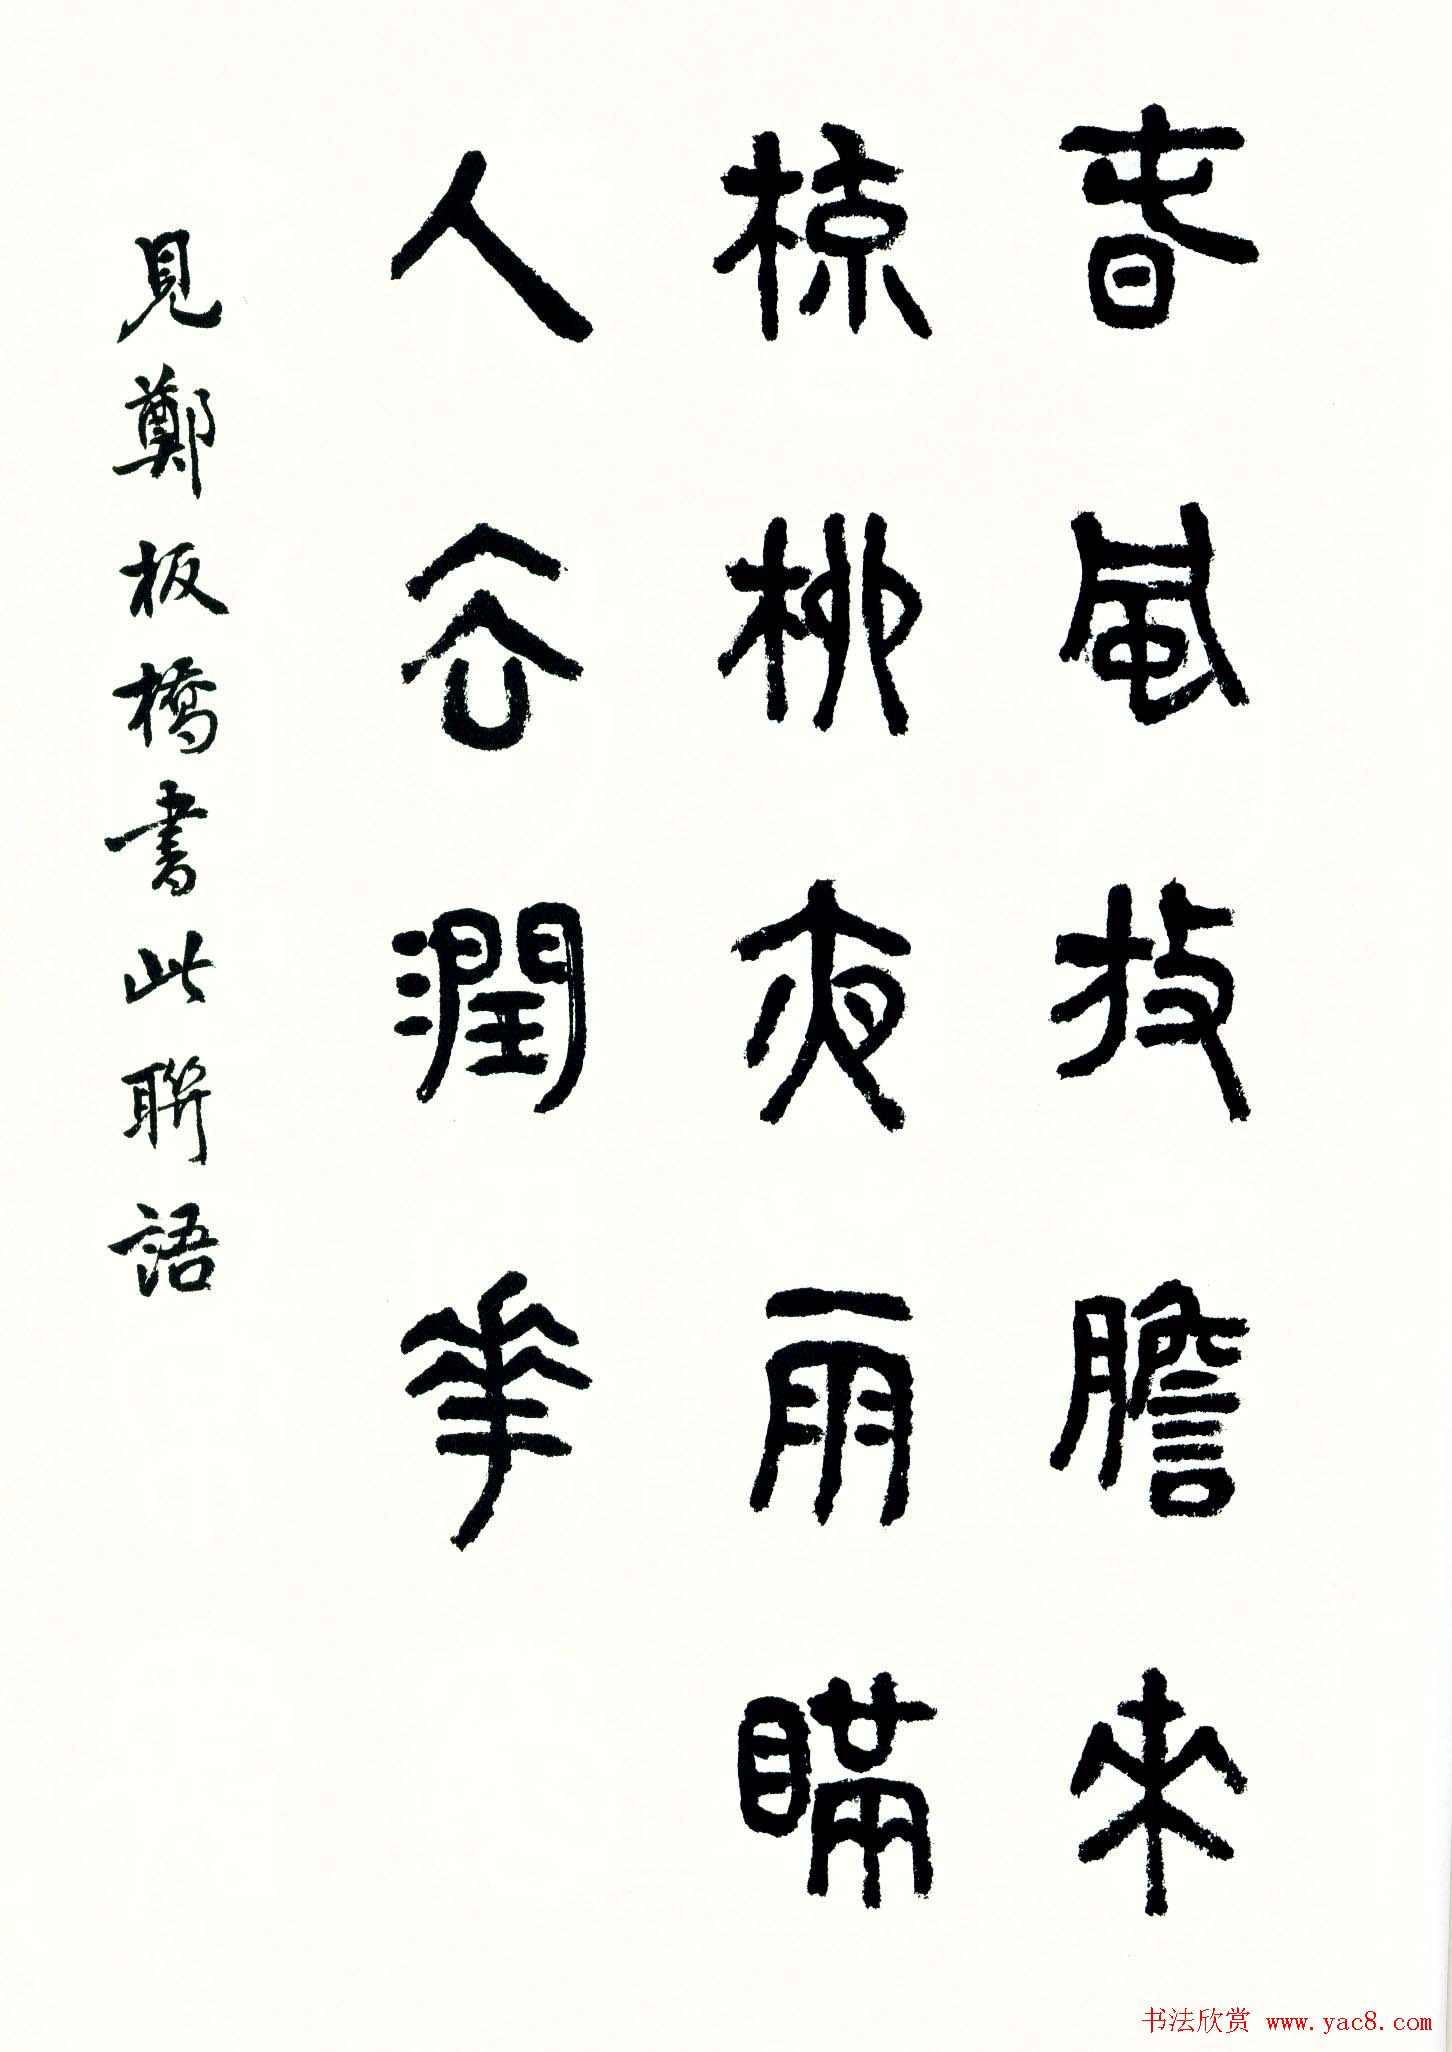 春風放膽來
梳柳夜雨瞞
人去潤華
見鄭板橋書此聯語
书法欣赏 www.yac8.com